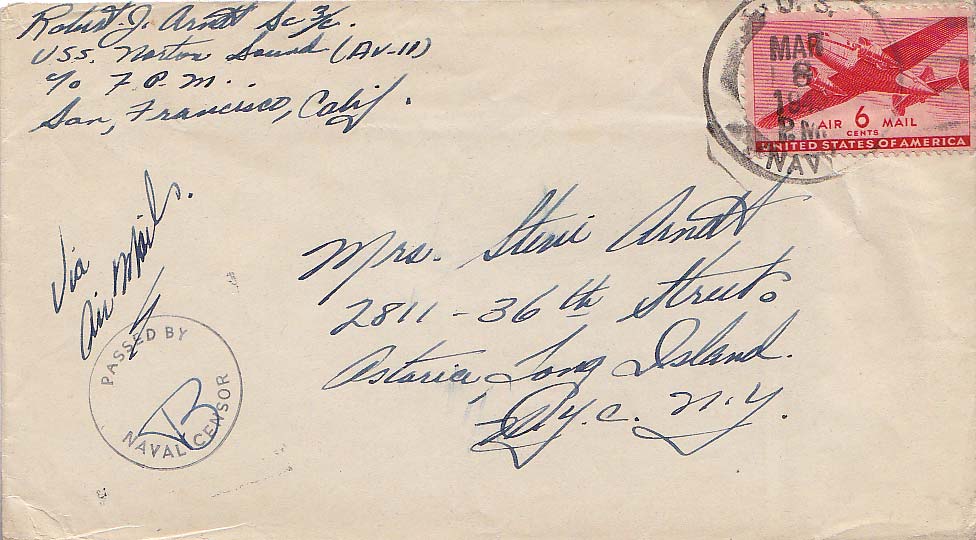 Robert J. Arndt Sc 3/c.
USS. Norton Sound (AV-11)
c/o F.P.M.
San, Francisco, Calif.
U.S.
MAR
8
P.M.
NAVY
AIR 6 MAIL
CENTS
UNITED STATES OF AMERICA
Via
Air Mail.
Mrs. Steve Arndt
2811-36th Street.
Astoria, Long Island.
N.Y.C. N.Y.
PASSED BY
B
NAVAL CENSOR